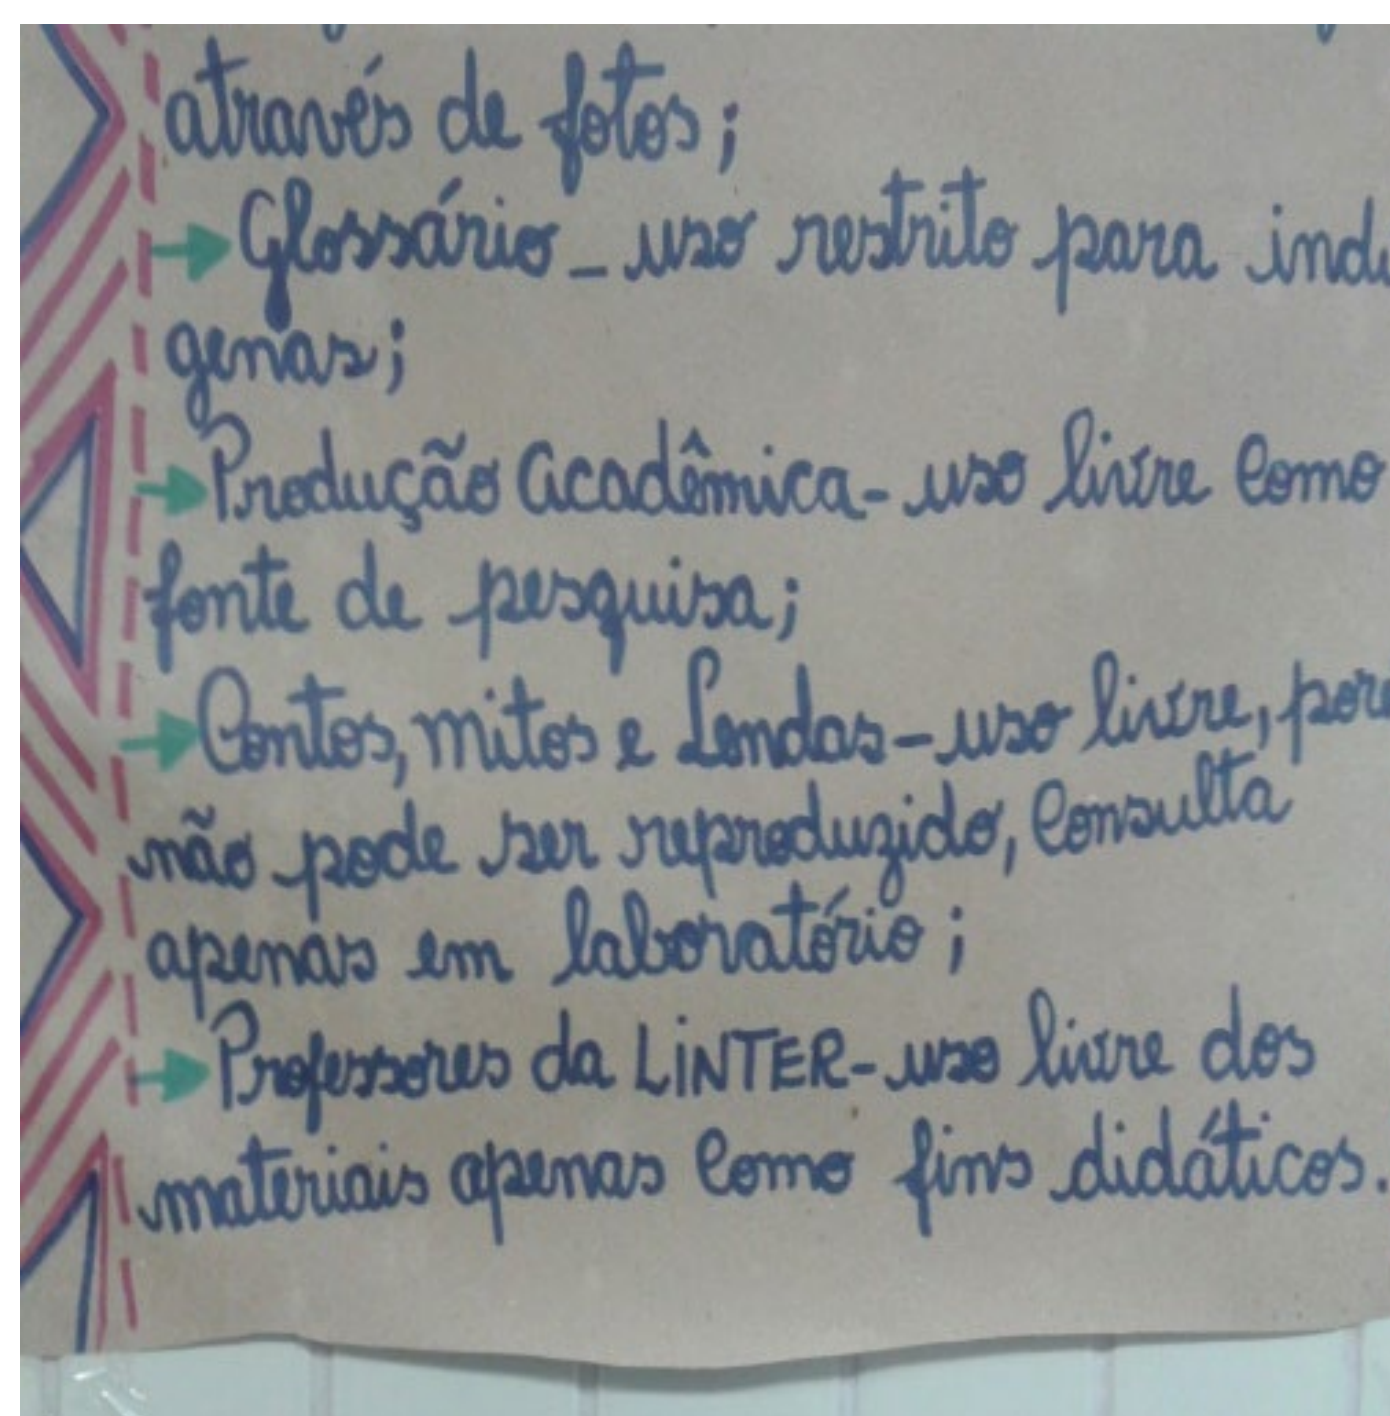 através de fotos;
→ Glossário _ uso restrito para indi
genas;
→ Produção Acadêmica - uso livre como
fonte de pesquisa;
→ Contos, mitos e Lendas - uso livre, pore
não pode ser reproduzido, consulta
apenas em laboratório;
→ Professores da LiNTER - uso livre dos
materiais apenas como fins didáticos.